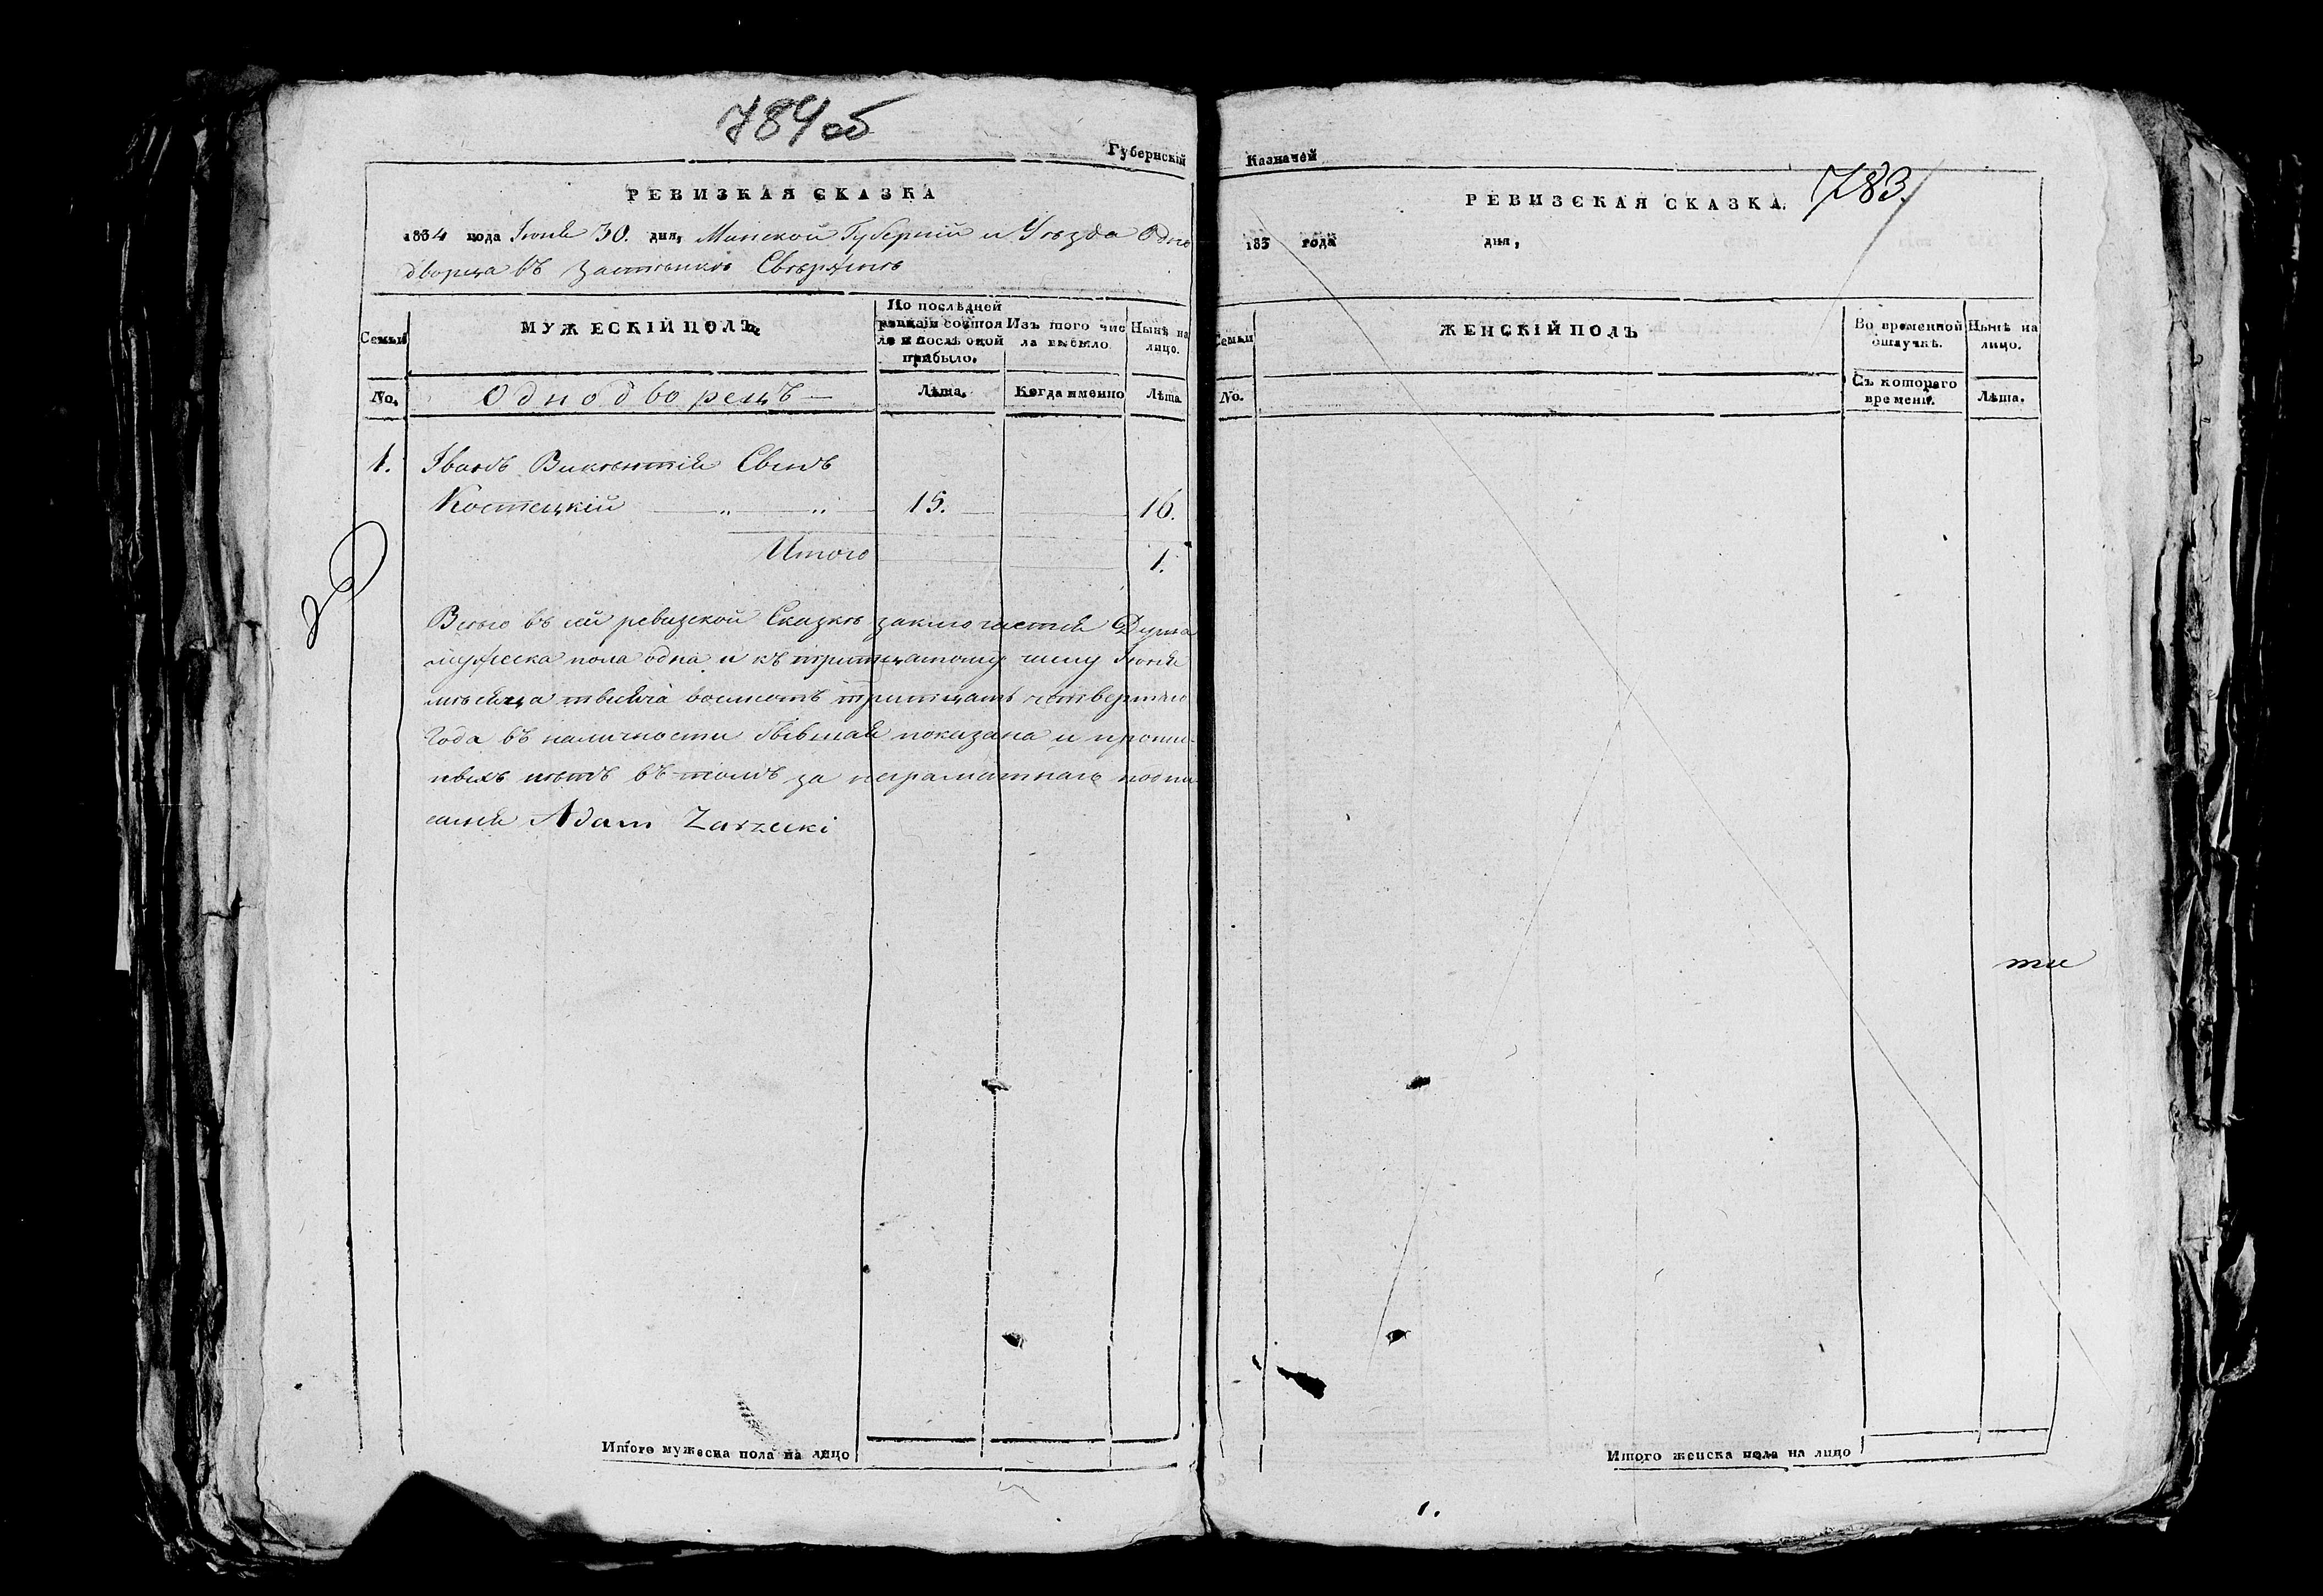 784об
Губернскій
РЕВИЗКАЯ СКАЗКА
1834 года Іюня 30. дня, Минской Губерніи и Уѣзда Одно
дворца въ Застѣнкѣ Свѣржнѣ
Семьи
МУЖЕСКІЙ ПОЛЪ
По послѣдней
ревизіи состоя
ло и послѣ оной
прибыло.
Изъ того чис
ла выбыло
Нынѣ на
лицо.
No.
Однодворецъ
Лѣта.
Когда именно
Лѣта
1. Іванъ Викентія Сынъ
Костецкій 15. 16.
Итого 1.
Всего въ сей ревизской Сказкѣ заключается Душа
мужеска пола одна и къ тритцатому числу Іюня
мѣсяца тысяча восмсотъ тритцать четвертаго
Года въ наличности бывшая показана и пропис-
ныхъ нѣтъ въ томъ за неграматнаго подпи
сался Adam Zarzecki
Итого мужеска пола на лицо
Казначей
783
РЕВИЗСКАЯ СКАЗКА.
183 года дня,
Семьи
ЖЕНСКІЙ ПОЛЪ
Во временной
отлучкѣ.
Нынѣ на
лицо.
No.
Съ котораго
времени.
Лѣта.
ти
Итого женска пола на лицо
1.